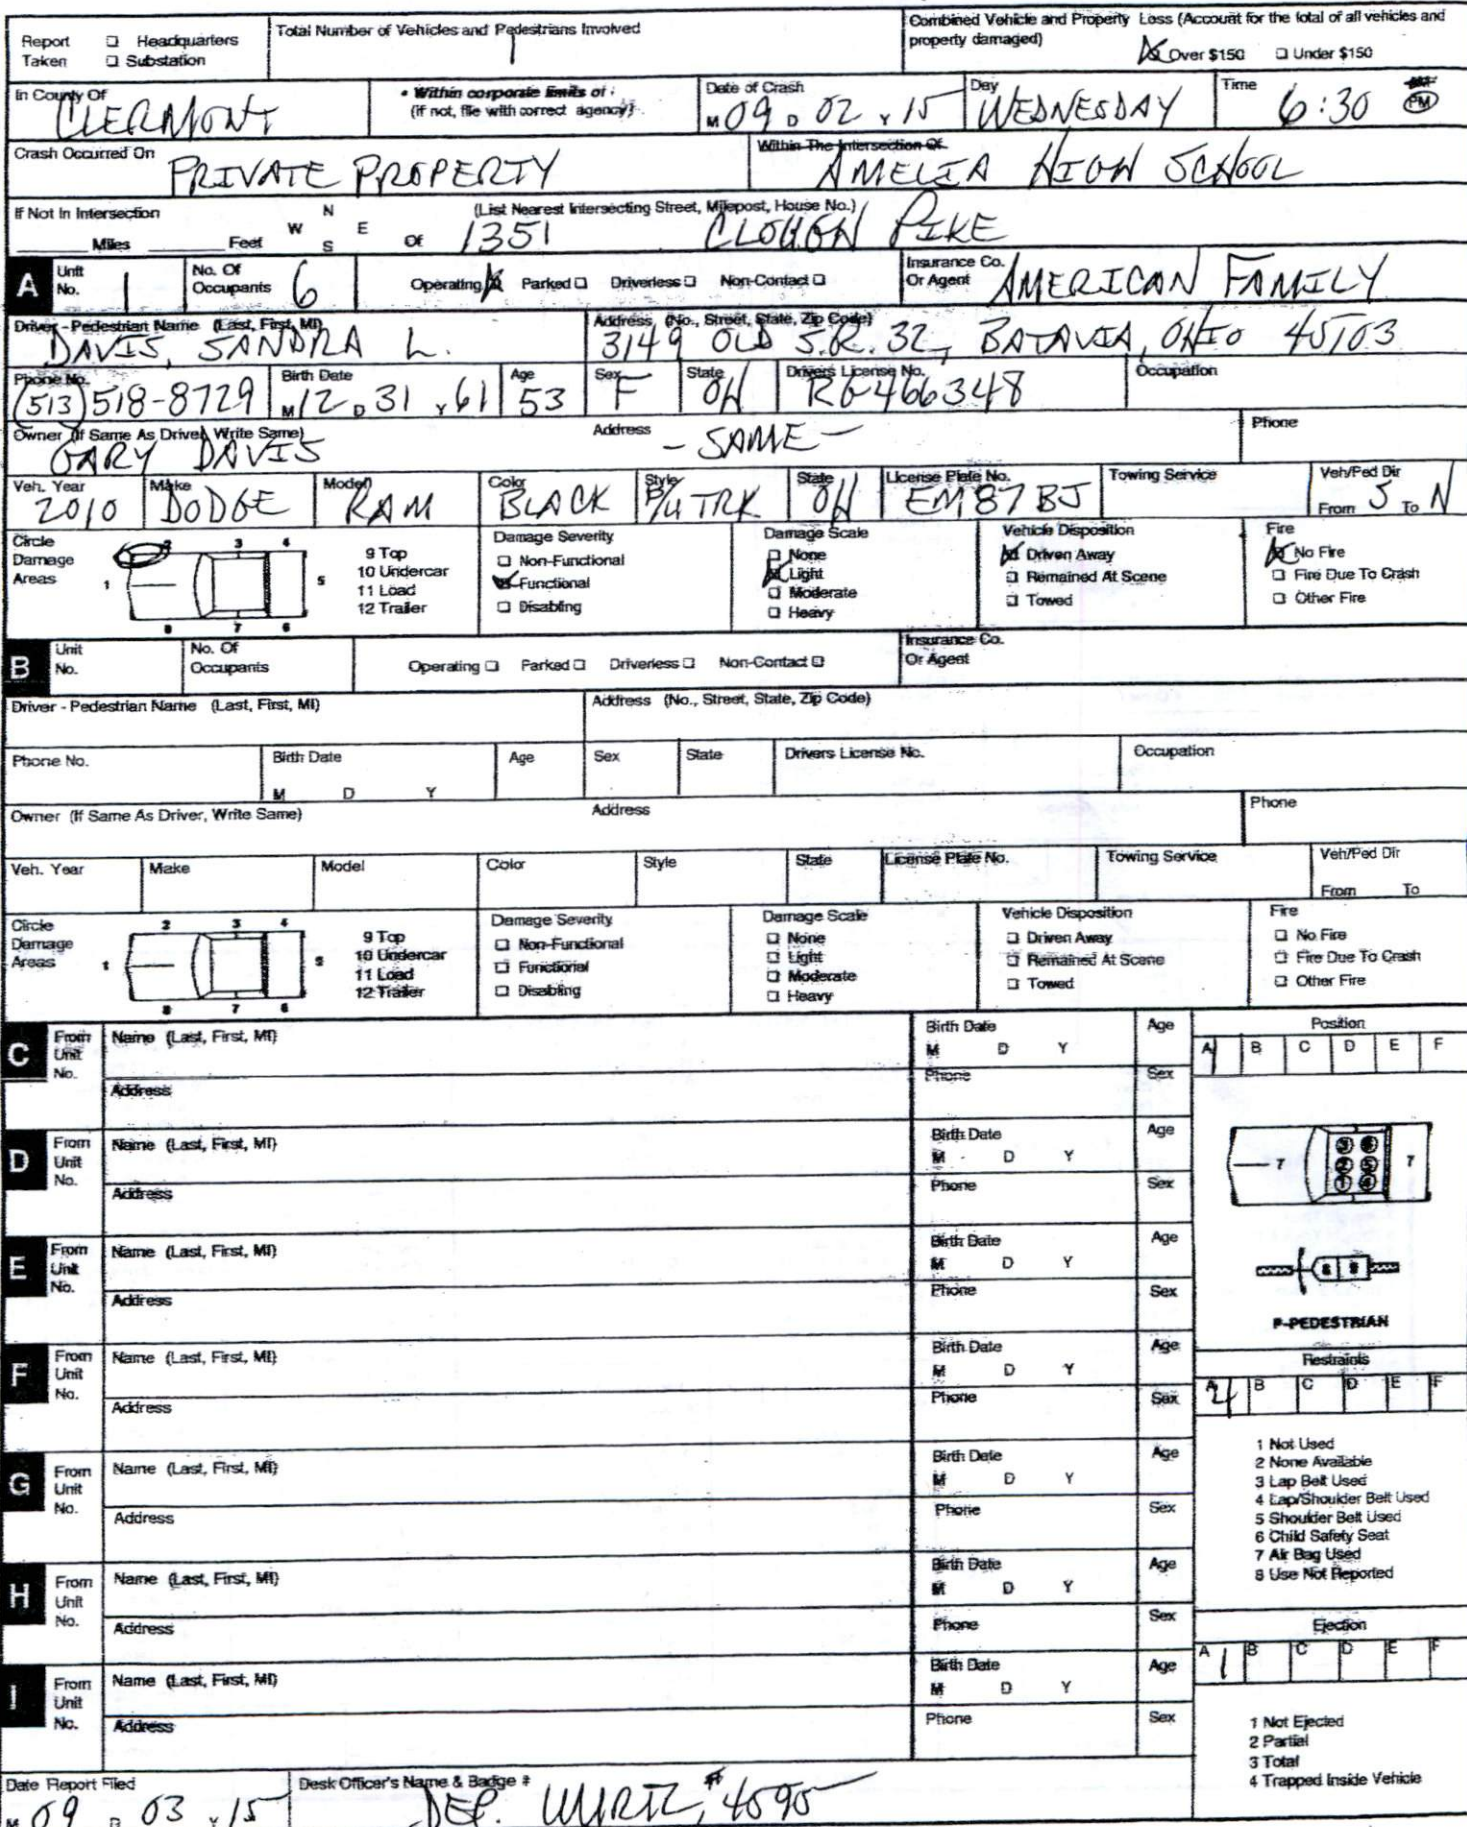 Total Number of Vehicles and Pedestrians Involved
Combined Vehicle and Property Loss (Account for the total of all vehicles and
property damaged)
Report ☐ Headquarters
Taken ☐ Substation
1
☒ Over $150 ☐ Under $150
In County Of CLERMONT
• Within corporate limits of :
(if not, file with correct agency)
Date of Crash M 09 D 02 Y 15
Day WEDNESDAY
Time 6:30 PM
Crash Occurred On PRIVATE PROPERTY
Within The Intersection Of AMELIA HIGH SCHOOL
If Not In Intersection
(List Nearest Intersecting Street, Milepost, House No.)
____ Miles ____ Feet N W E S Of 1351 CLOUGH PIKE
A Unit No. 1 No. Of Occupants 6 Operating ☒ Parked ☐ Driverless ☐ Non-Contact ☐ Insurance Co. Or Agent AMERICAN FAMILY
Driver - Pedestrian Name (Last, First, MI) DAVIS, SANDRA L.
Address (No., Street, State, Zip Code) 3149 OLD S.R. 32, BATAVIA, OHIO 45103
Phone No. (513) 518-8729 Birth Date M 12 D 31 Y 61 Age 53 Sex F State OH Drivers License No. RG466348 Occupation
Owner (If Same As Driver, Write Same) GARY DAVIS Address - SAME - Phone
Veh. Year 2010 Make DODGE Model RAM Color BLACK Style P/U TRK State OH License Plate No. EM87BJ Towing Service Veh/Ped Dir From S To N
Circle Damage Areas
1 2 3 4 5 6 7 8
9 Top
10 Undercar
11 Load
12 Trailer
Damage Severity
☐ Non-Functional
☒ Functional
☐ Disabling
Damage Scale
☐ None
☒ Light
☐ Moderate
☐ Heavy
Vehicle Disposition
☒ Driven Away
☐ Remained At Scene
☐ Towed
Fire
☒ No Fire
☐ Fire Due To Crash
☐ Other Fire
B Unit No. No. Of Occupants Operating ☐ Parked ☐ Driverless ☐ Non-Contact ☐ Insurance Co. Or Agent
Driver - Pedestrian Name (Last, First, MI) Address (No., Street, State, Zip Code)
Phone No. Birth Date M D Y Age Sex State Drivers License No. Occupation
Owner (If Same As Driver, Write Same) Address Phone
Veh. Year Make Model Color Style State License Plate No. Towing Service Veh/Ped Dir From To
Circle Damage Areas
1 2 3 4 5 6 7 8
9 Top
10 Undercar
11 Load
12 Trailer
Damage Severity
☐ Non-Functional
☐ Functional
☐ Disabling
Damage Scale
☐ None
☐ Light
☐ Moderate
☐ Heavy
Vehicle Disposition
☐ Driven Away
☐ Remained At Scene
☐ Towed
Fire
☐ No Fire
☐ Fire Due To Crash
☐ Other Fire
C From Unit No. Name (Last, First, MI) Birth Date M D Y Age
Address Phone Sex
D From Unit No. Name (Last, First, MI) Birth Date M D Y Age
Address Phone Sex
E From Unit No. Name (Last, First, MI) Birth Date M D Y Age
Address Phone Sex
F From Unit No. Name (Last, First, MI) Birth Date M D Y Age
Address Phone Sex
G From Unit No. Name (Last, First, MI) Birth Date M D Y Age
Address Phone Sex
H From Unit No. Name (Last, First, MI) Birth Date M D Y Age
Address Phone Sex
I From Unit No. Name (Last, First, MI) Birth Date M D Y Age
Address Phone Sex
Position
A B C D E F
7 3 6 2 5 1 4 7
8 9
P-PEDESTRIAN
Restraints
A 4 B C D E F
1 Not Used
2 None Available
3 Lap Belt Used
4 Lap/Shoulder Belt Used
5 Shoulder Belt Used
6 Child Safety Seat
7 Air Bag Used
8 Use Not Reported
Ejection
A 1 B C D E F
1 Not Ejected
2 Partial
3 Total
4 Trapped Inside Vehicle
Date Report Filed M 09 D 03 Y 15
Desk Officer's Name & Badge # DEP. WIRTZ, #4090